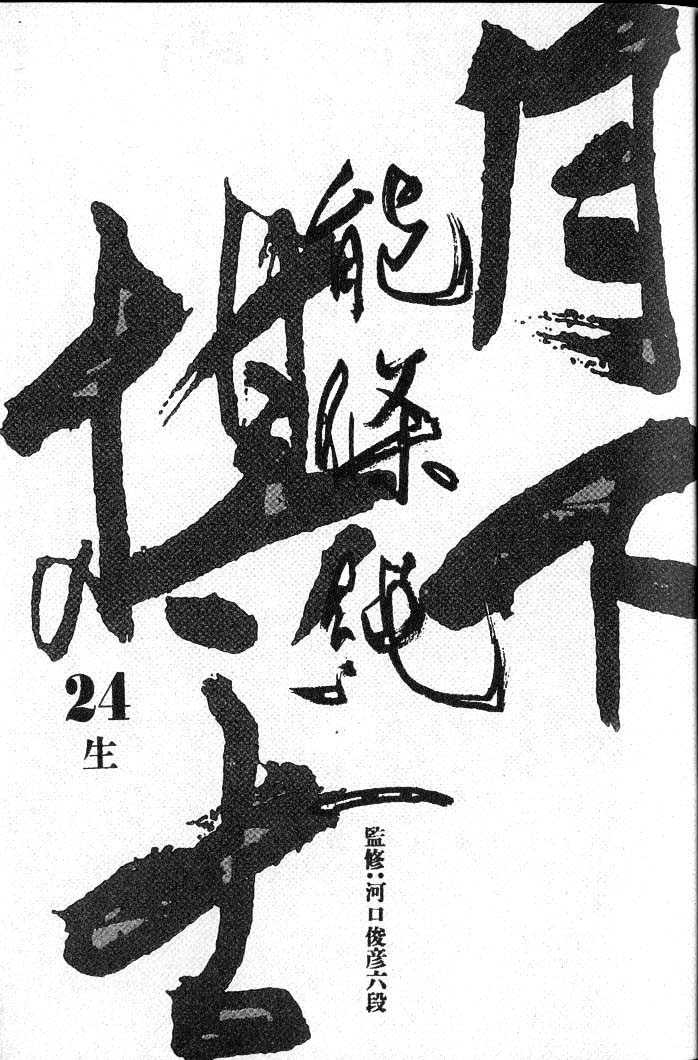 月下
棋士
能條純一
24
生
監修:河口俊彦六段